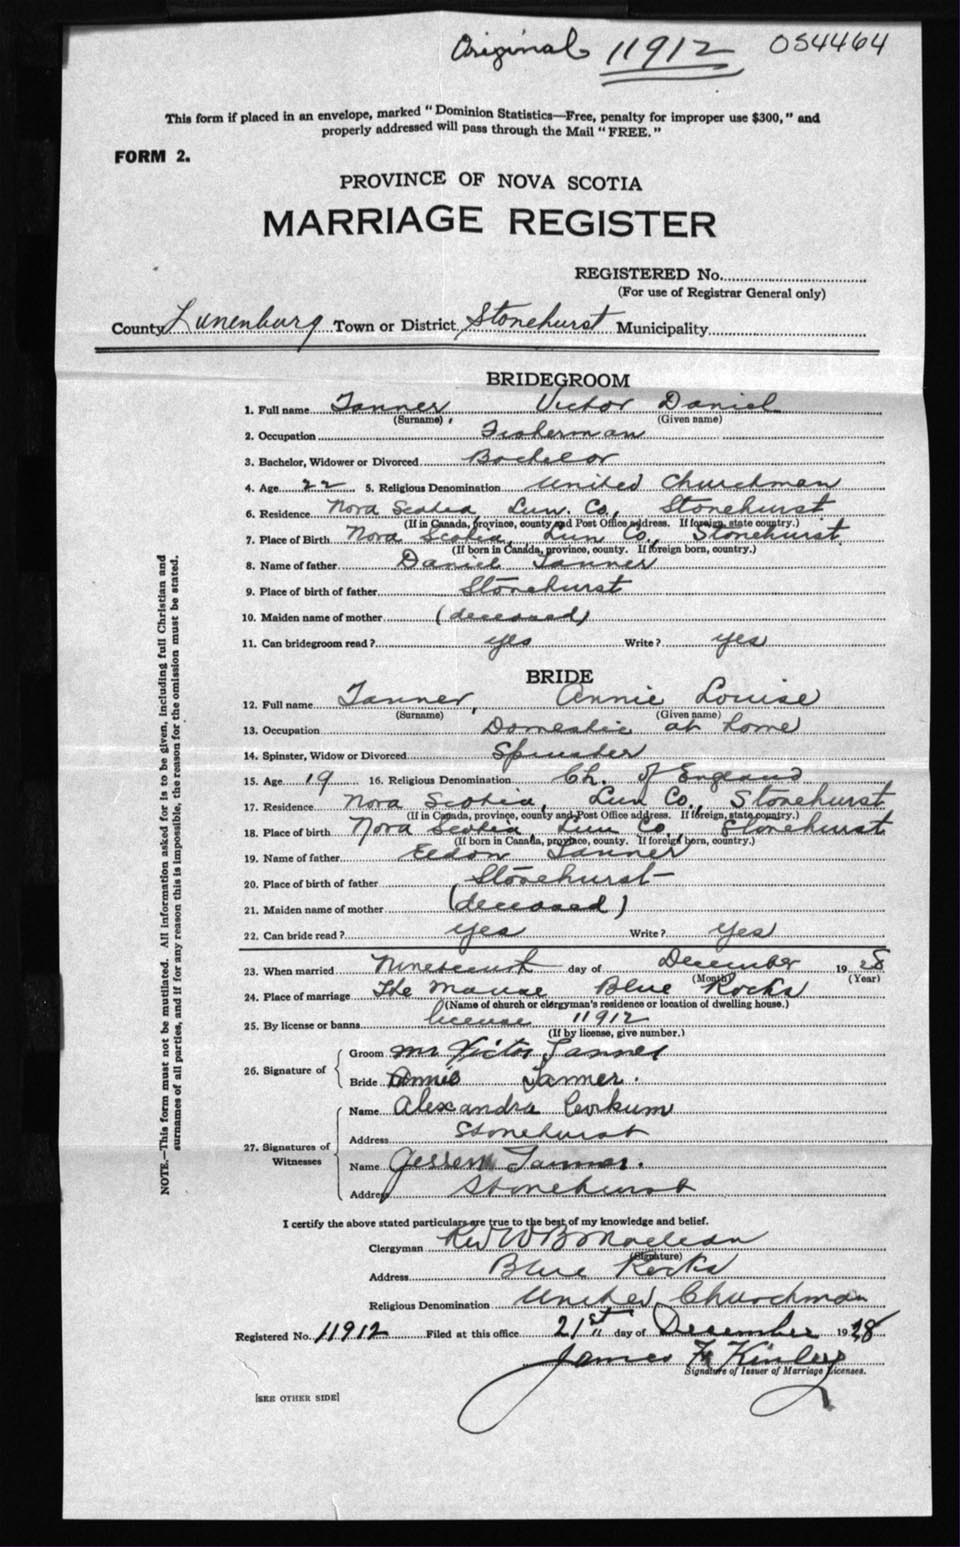 Original 11912 054464
This form if placed in an envelope, marked "Dominion Statistics—Free, penalty for improper use $300," and
properly addressed will pass through the Mail "FREE."
FORM 2.
PROVINCE OF NOVA SCOTIA
MARRIAGE REGISTER
REGISTERED No.
(For use of Registrar General only)
County Lunenburg Town or District Stonehurst Municipality
BRIDEGROOM
1. Full name Tanner Victor Daniel
(Surname) (Given name)
2. Occupation Fisherman
3. Bachelor, Widower or Divorced Bachelor
4. Age 22 5. Religious Denomination United Churchman
6. Residence Nova Scotia, Lun. Co., Stonehurst
(If in Canada, province, county and Post Office address. If foreign, state country.)
7. Place of Birth Nova Scotia, Lun Co., Stonehurst
(If born in Canada, province, county. If foreign born, country.)
8. Name of father Daniel Tanner
9. Place of birth of father Stonehurst
10. Maiden name of mother (deceased)
11. Can bridegroom read? yes Write? yes
BRIDE
12. Full name Tanner, Annie Louise
(Surname) (Given name)
13. Occupation Domestic at home
14. Spinster, Widow or Divorced Spinster
15. Age 19 16. Religious Denomination Ch. of England
17. Residence Nova Scotia, Lun Co., Stonehurst
(If in Canada, province, county and Post Office address. If foreign, state country.)
18. Place of birth Nova Scotia, Lun Co., Stonehurst
(If born in Canada, province, county. If foreign born, country.)
19. Name of father Eldon Tanner
20. Place of birth of father Stonehurst
21. Maiden name of mother (deceased)
22. Can bride read? yes Write? yes
23. When married Nineteenth day of December 1928
(Month) (Year)
24. Place of marriage The Manse Blue Rocks
(Name of church or clergyman's residence or location of dwelling house.)
25. By license or banns license 11912
(If by license, give number.)
26. Signature of
Groom Mr Victor Tanner
Bride Annie Tanner.
27. Signatures of Witnesses
Name Alexandra Corkum
Address Stonehurst
Name Tanner.
Address Stonehurst
I certify the above stated particulars are true to the best of my knowledge and belief.
Clergyman Rev W B Maclean
(Signature)
Address Blue Rocks
Religious Denomination United Churchman
Registered No. 11912 Filed at this office 21st day of December 1928
James Kinley
Signature of Issuer of Marriage Licenses.
[SEE OTHER SIDE]
NOTE.—This form must not be mutilated. All information asked for is to be given, including full Christian and
surnames of all parties, and if for any reason this is impossible, the reason for the omission must be stated.